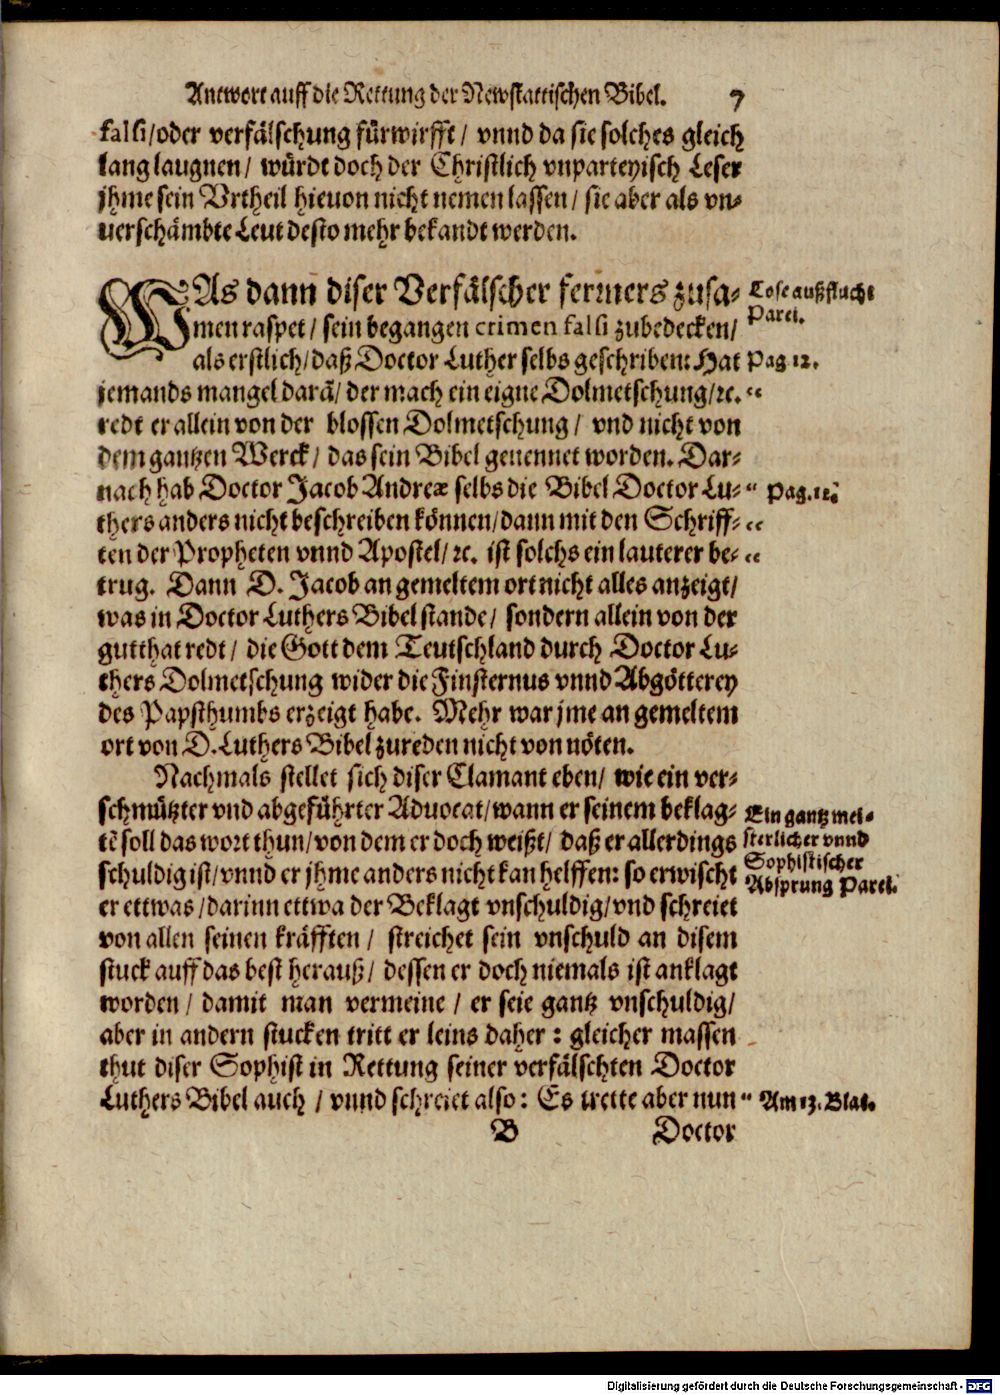 Antwort auff die Rettung der Newstattischen Bibel. 7
falsi/oder verfälschung fürwirfft/ vnnd da sie solches gleich
lang laugnen/ würdt doch der Christlich vnparteyisch Leser
jhme sein Vrtheil hieuon nicht nemen lassen/ sie aber als vn-
uerschämbte Leut desto mehr bekandt werden.
WAs dann diser Verfälscher ferrners zusa-
men raspet/ sein begangen crimen falsi zubedecken/
als erstlich/ daß Doctor Luther selbs geschriben: Hat
jemands mangel darā/ der mach ein eigne Dolmetschung/ꝛc. “
redt er allein von der blossen Dolmetschung/ vnd nicht von
dem gantzen Werck/ das sein Bibel genennet worden. Dar-
nach hab Doctor Jacob Andreæ selbs die Bibel Doctor Lu- “
thers anders nicht beschreiben können/dann mit den Schriff- “
ten der Propheten vnnd Apostel/ꝛc. ist solchs ein lauterer be- “
trug. Dann D. Jacob an gemeltem ort nicht alles anzeigt/
was in Doctor Luthers Bibel stande/ sondern allein von der
gutthat redt/ die Gott dem Teutschland durch Doctor Lu-
thers Dolmetschung wider die Finsternus vnnd Abgötterey
des Papsthumbs erzeigt habe. Mehr war jme an gemeltem
ort von D. Luthers Bibel zureden nicht von nöten.
Nachmals stellet sich diser Clamant eben/ wie ein ver-
schmützter vnd abgeführter Aduocat/wann er seinem beklag-
tē soll das wort thun/von dem er doch weißt/ daß er allerdings
schuldig ist/vnnd er jhme anders nicht kan helffen: so erwischt
er ettwas/darinn ettwa der Beklagt vnschuldig/vnd schreiet
von allen seinen kräfften/ streichet sein vnschuld an disem
stuck auff das best herauß/ dessen er doch niemals ist anklagt
worden/ damit man vermeine/ er seie gantz vnschuldig/
aber in andern stucken tritt er leins daher: gleicher massen
thut diser Sophist in Rettung seiner verfälschten Doctor
Luthers Bibel auch/ vnnd schreiet also: Es trette aber nun “
B Doctor
Lose außflucht
Parei.
Pag 12.
Pag. 12.
Ein gantz mei-
sterlicher vnnd
Sophistischer
Absprung Parei.
Am 13. Blat.
Digitalisierung gefördert durch die Deutsche Forschungsgemeinschaft - DFG